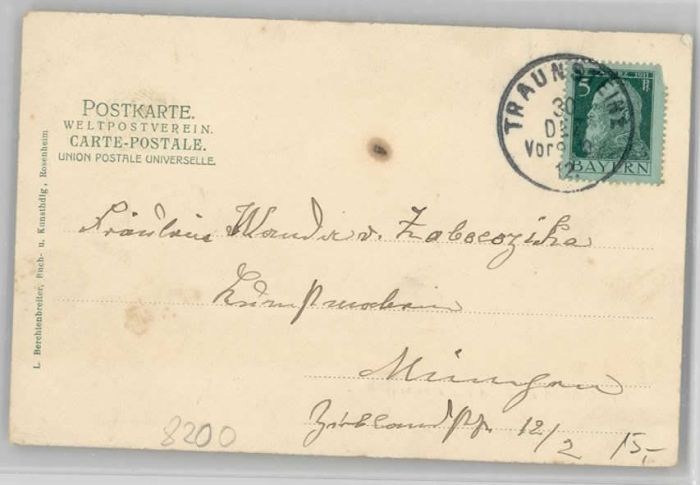 POSTKARTE.
WELTPOSTVEREIN.
CARTE-POSTALE.
UNION POSTALE UNIVERSELLE.
L. Berchtenbreiter, Buch- u. Kunsthdlg., Rosenheim
TRAUNSTEIN
30
Vor
12.
1911
5
BAYERN
Fräulein Wanda v.
Kunstmalerin
München
Zieblandstr. 12/2
15,-
8200